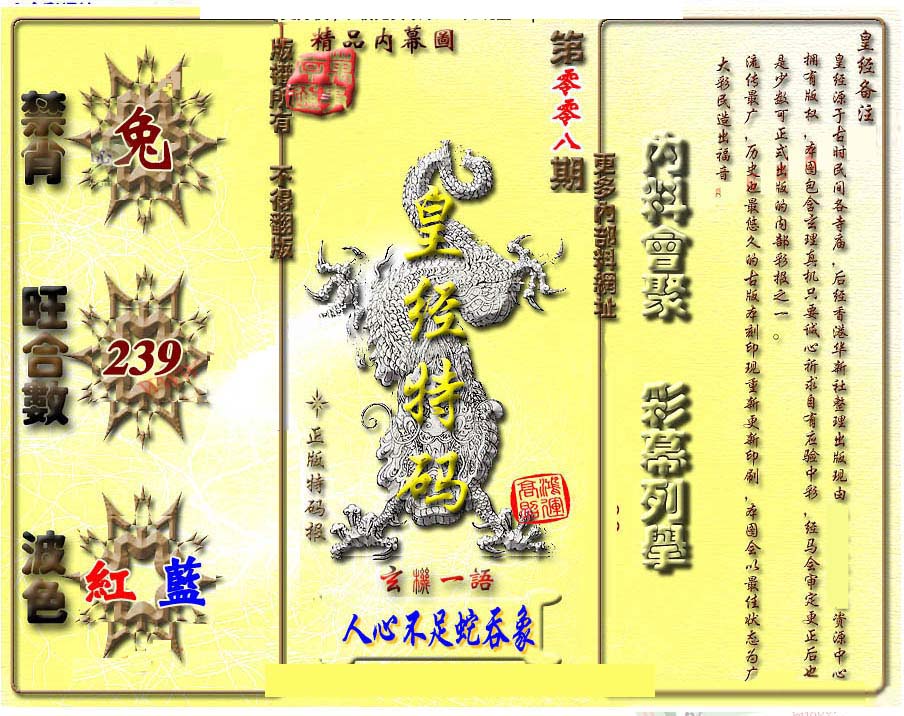 精品内幕圖
版權所有 不得翻版
第零零八期
更多內部料網址
禁肖
兔
旺合數
239
波色
紅 藍
皇经特码
正版特码报
鴻運高照
玄機一語
人心不足蛇吞象
內料會聚 彩幕列擧
皇经备注
皇经源于古时民间各寺庙,后经香港华新社整理出版现由 资源中心
拥有版权,本图包含玄理真机只要诚心祈求自有应验中彩,经马会审定更正后也
是少数可正式出版的内部彩报之一。
流传最广,历史也最悠久的古版本刻印现重新更新印刷,本图会以最佳状态为广
大彩民造出福音